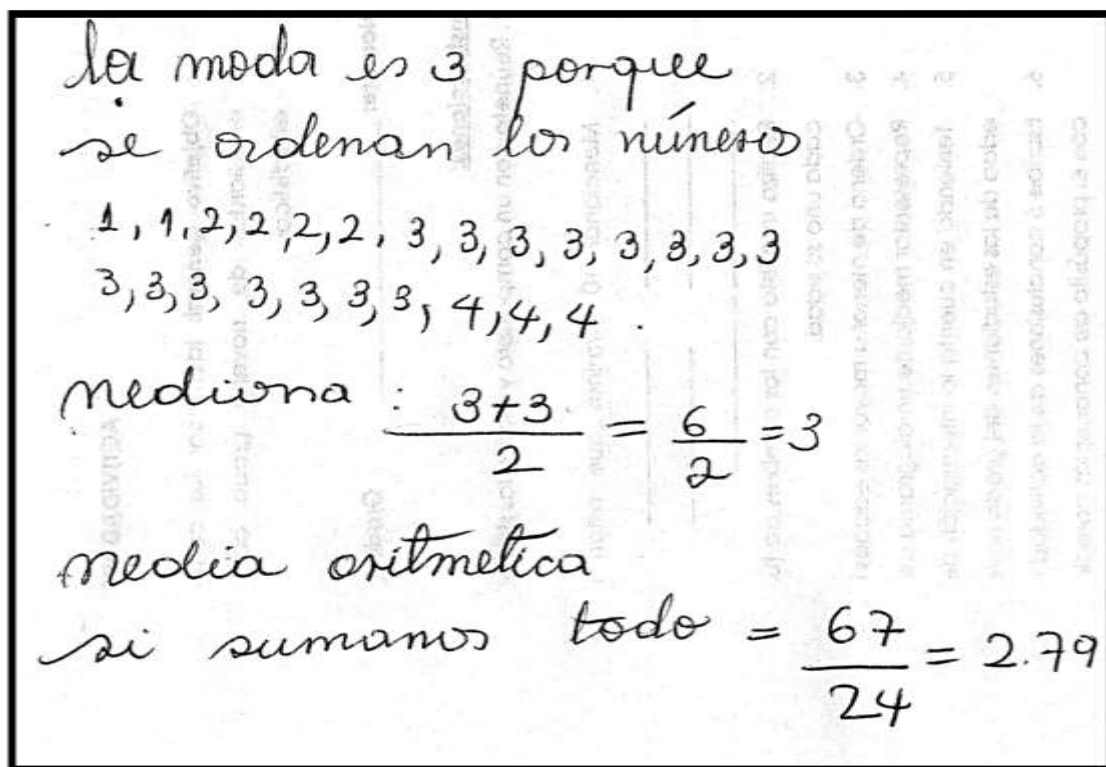 la moda es 3 porque
se ordenan los números
1, 1, 2, 2, 2, 2, 3, 3, 3, 3, 3, 3, 3, 3
3, 3, 3, 3, 3, 3, 3, 4, 4, 4.
mediana: 3+3/2 = 6/2 = 3
media aritmetica
si sumamos todo = 67/24 = 2.79